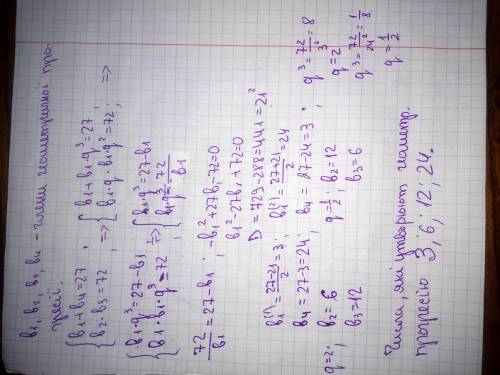 b1, b2, b3, b4 - члени геометричної про-
гресії.
{ b1+b4=27 ; b2·b3=72 ; => { b1+b1·q³=27 ; b1·q·b1·q²=72 ; =>
{ b1·q³=27-b1 ; b1·b1·q³=72 => { b1·q³=27-b1 ; b1·q³=72/b1
72/b1=27-b1 ; -b1²+27b1-72=0
b1²-27b1+72=0
D=729-288=441=21²
b1⁽¹⁾=(27-21)/2=3 ; b1⁽²⁾=(27+21)/2=24
b4=27-3=24 ; b4=27-24=3 ;
q³=72/3²=8
q=2
q³=72/24²=1/8
q=1/2
q=2; b2=6 q=1/2 ; b2=12
b3=12 b3=6
Числа, які утворюют геометр.
прогресію 3; 6; 12; 24.